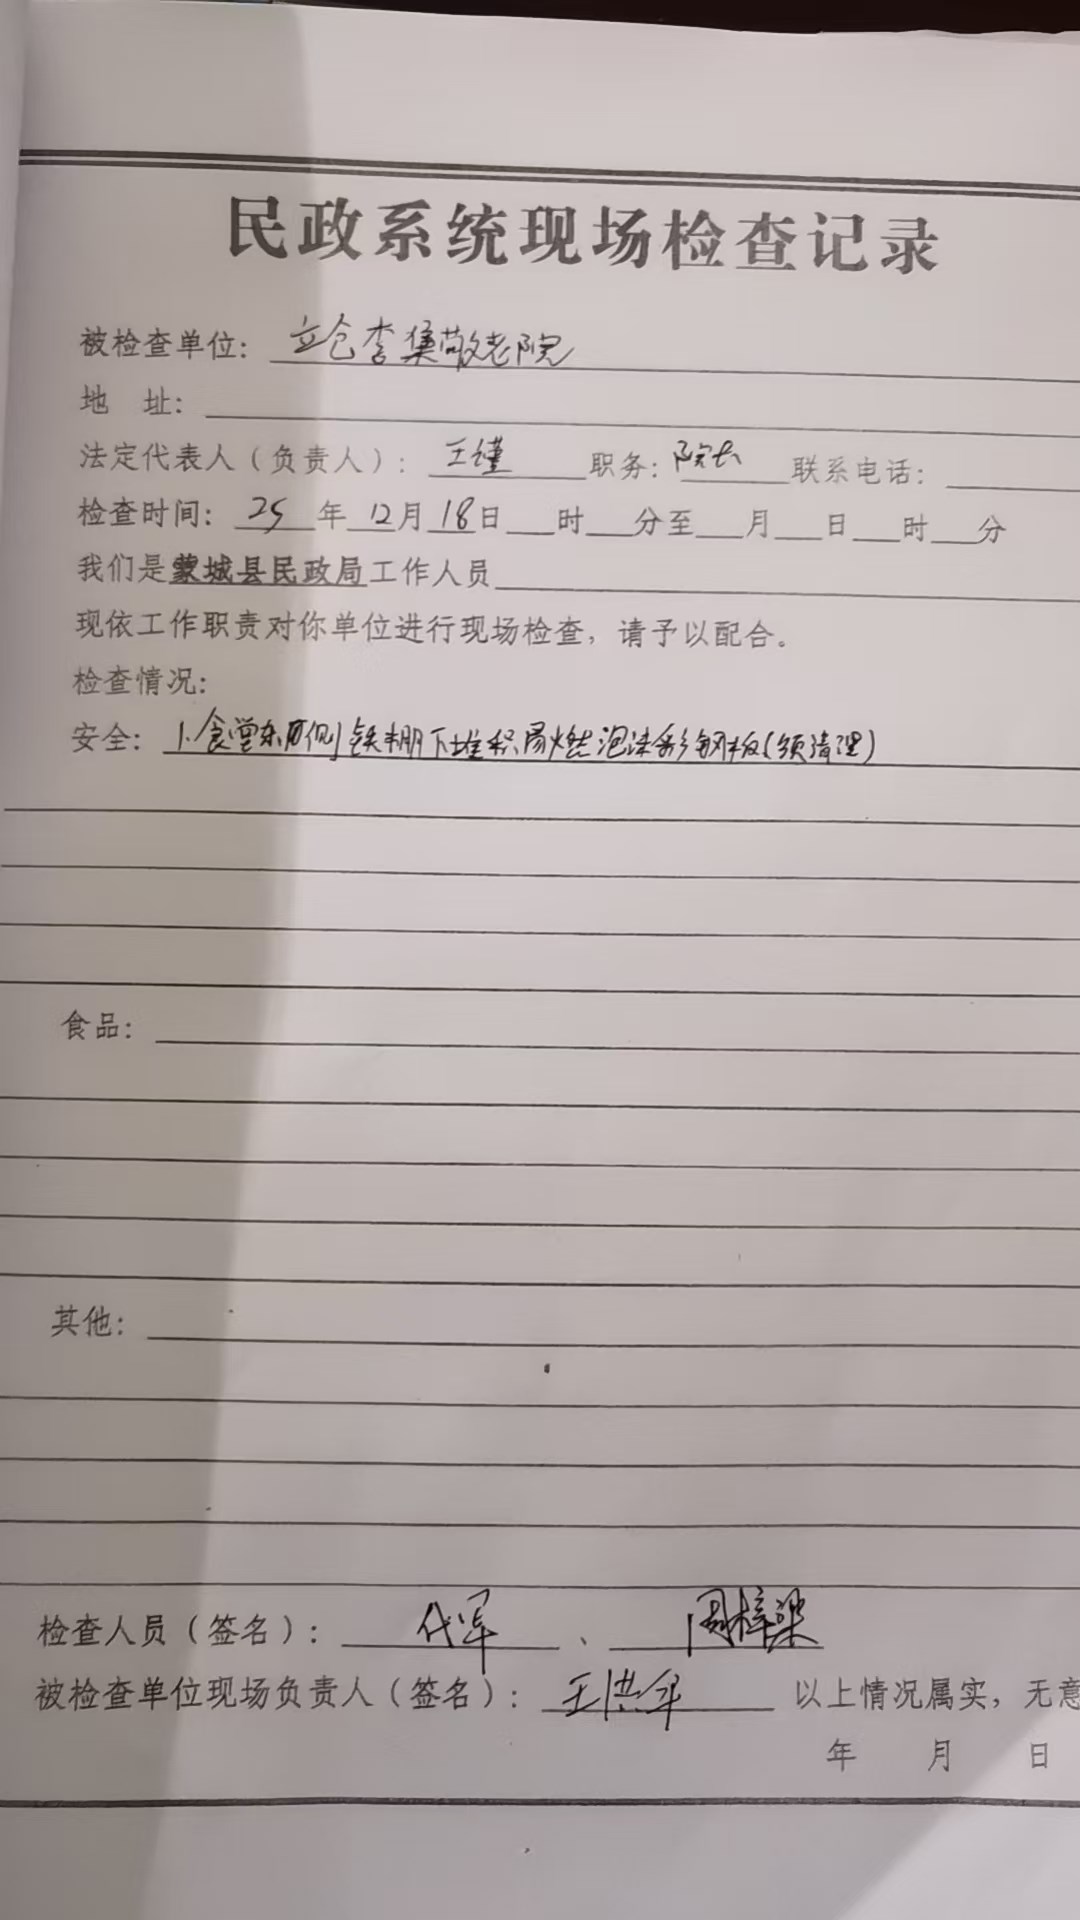 民政系统现场检查记录
被检查单位：立仓李集敬老院
地 址：
法定代表人（负责人）：王瑾 职务：院长 联系电话：
检查时间：25年12月18日 时 分至 月 日 时 分
我们是蒙城县民政局工作人员
现依工作职责对你单位进行现场检查，请予以配合。
检查情况：
安全：1.食堂东西侧铁棚下堆积易燃泡沫彩钢板（须清理）
食品：
其他：
检查人员（签名）：代军、周梓梁
被检查单位现场负责人（签名）：王洪军 以上情况属实，无意
年 月 日